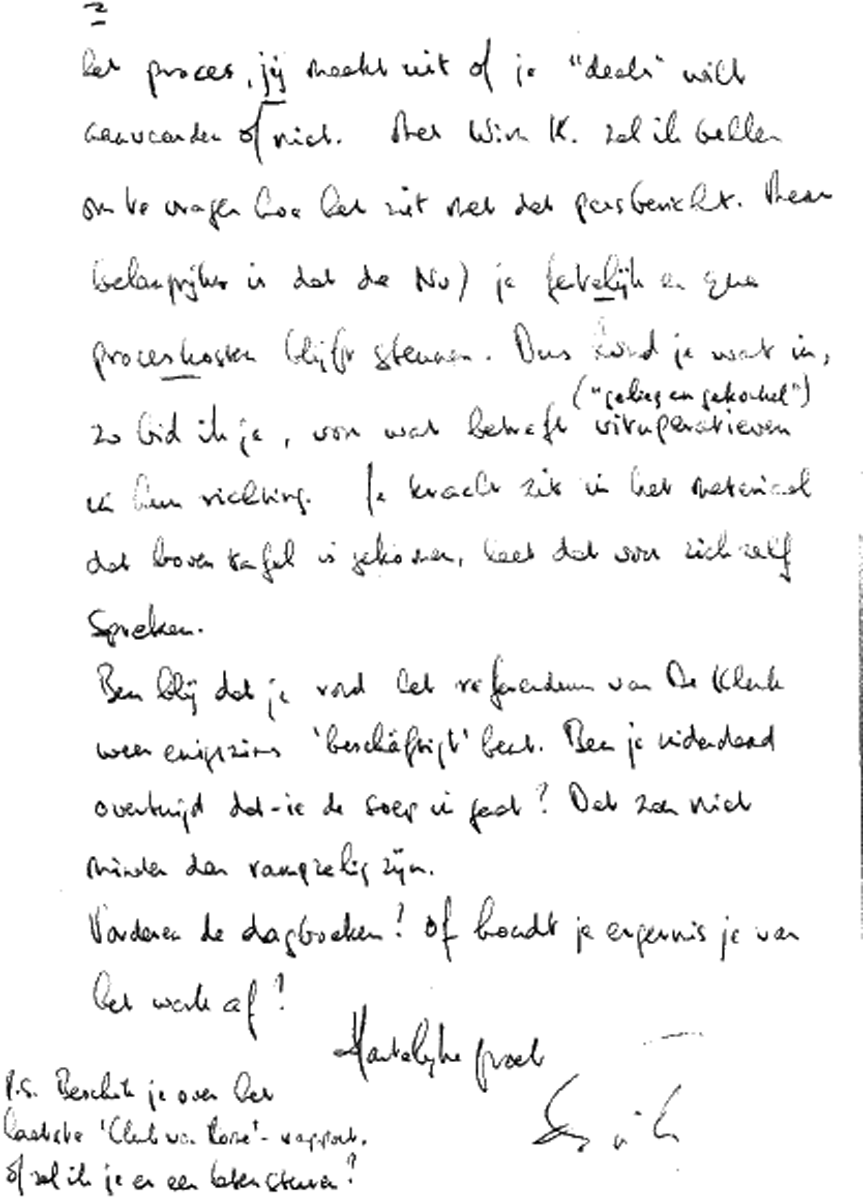 2
het proces, jij maakt uit of je "deals" wilt
aanvaarden of niet. Met Wim K. zal ik bellen
om te vragen hoe het zit met dat persbericht. Maar
belangrijker is dat de NVJ je feitelijk en qua
proceskosten blijft steunen. Dus houd je wat in,
("gelieg en gekonkel")
zo bid ik je, voor wat betreft vituperatieven
in hun richting. Je kracht zit in het materiaal
dat boven tafel is gekomen, laat dat voor zichzelf
spreken.
Ben blij dat je rond het referendum van De Klerk
weer enigszins 'beschäftigt' bent. Ben je inderdaad
overtuigd dat-ie de soep in gaat? Dat zou niet
minder dan rampzalig zijn.
Vorderen de dagboeken? Of houdt je ergernis je van
het werk af?
Hartelijke groet
P.S. Beschik je over het
laatste 'Club van Rome'-rapport,
of zal ik je er een laten sturen?